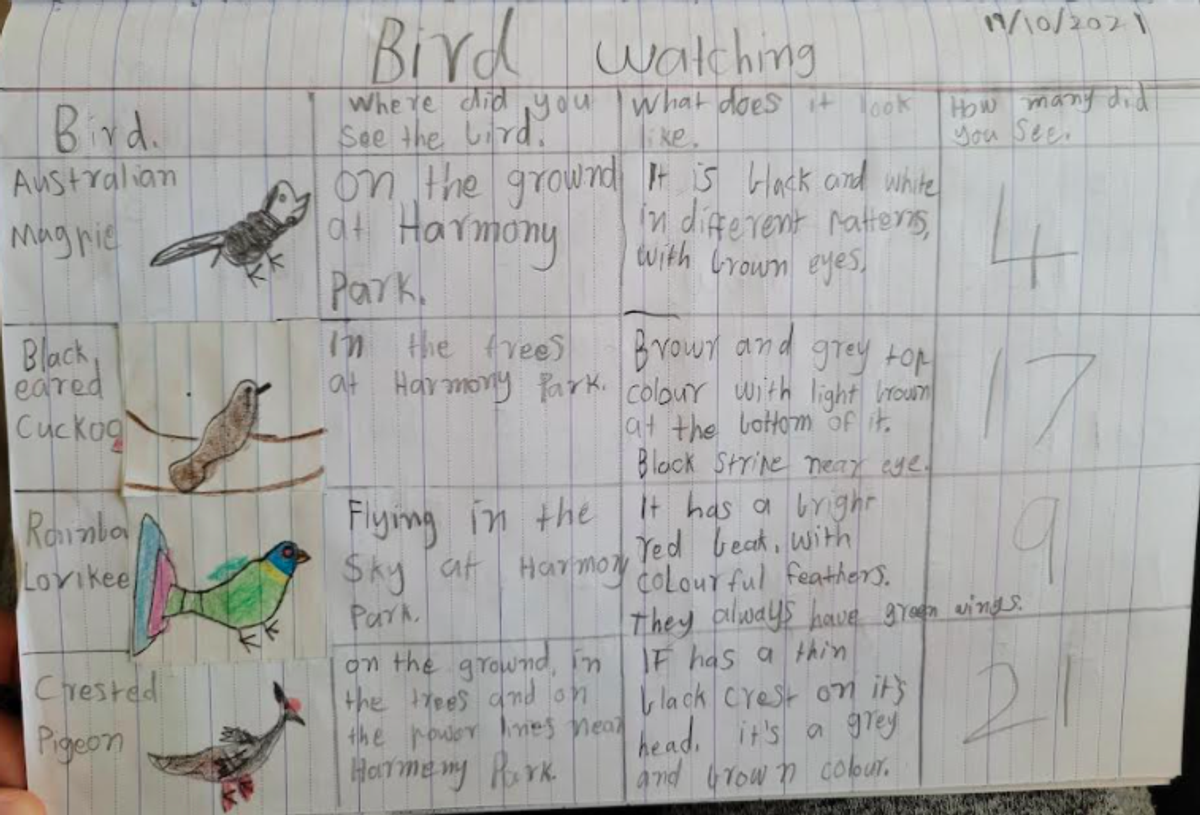 Bird Watching
19/10/2021
Bird.
Where did you
see the bird.
What does it look
like.
How many did
you see.
Australian
Magpie
On the grownd
at Harmony
Park.
It is black and white
in different patterns,
with brown eyes.
4
Black
eared
Cuckoo
In the trees
at Harmony Park.
Brown and grey top
colour with light brown
at the bottom of it.
Black stripe near eye.
17
Rainbo
Lorikee
Flying in the
Sky at Harmony
Park.
It has a bright
red beak, with
colourful feathers.
They always have green wings.
9
Crested
Pigeon
on the ground, in
the trees and on
the power lines near
Harmony Park.
It has a thin
black crest on it's
head. it's a grey
and brown colour.
21